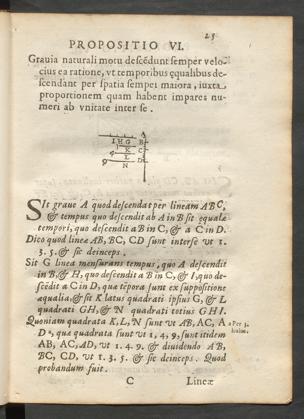 25
PROPOSITIO VI.
Grauia naturali motu descẽdunt semper velo-
cius ea ratione, vt temporibus ęqualibus de-
scendant per spatia semper maiora, iuxta
proportionem quam habent impares nu-
meri ab vnitate inter se.
A
I H G B
K C
L
N D
SIt graue A quod descendat per lineam ABC,
& tempus quo descendit ab A in B sit equale
tempori, quo descendit a B in C, & a C in D.
Dico quod lineæ AB, BC, CD sunt intersè vt 1.
3. 5. & sic deinceps.
Sit G linea mensurans tempus, quo A descendit
in B, & H, quo descendit a B in C, & I, quo de-
scẽdit a C in D, quæ tẽpora sunt ex suppositione
æqualia, & sit K latus quadrati ipsius G, & L
quadrati GH, & N quadrati totius GHI.
Quoniam quadrata K, L, N sunt vt AB, AC, A
D a, quæ quadrata sunt vt 1, 4, 9, sunt itidem
AB, AC, AD, vt 1. 4. 9. & diuidendo AB,
BC, CD, vt 1. 3. 5. & sic deinceps. Quod
probandum fuit.
a Per 3.
huius.
C
Lineæ